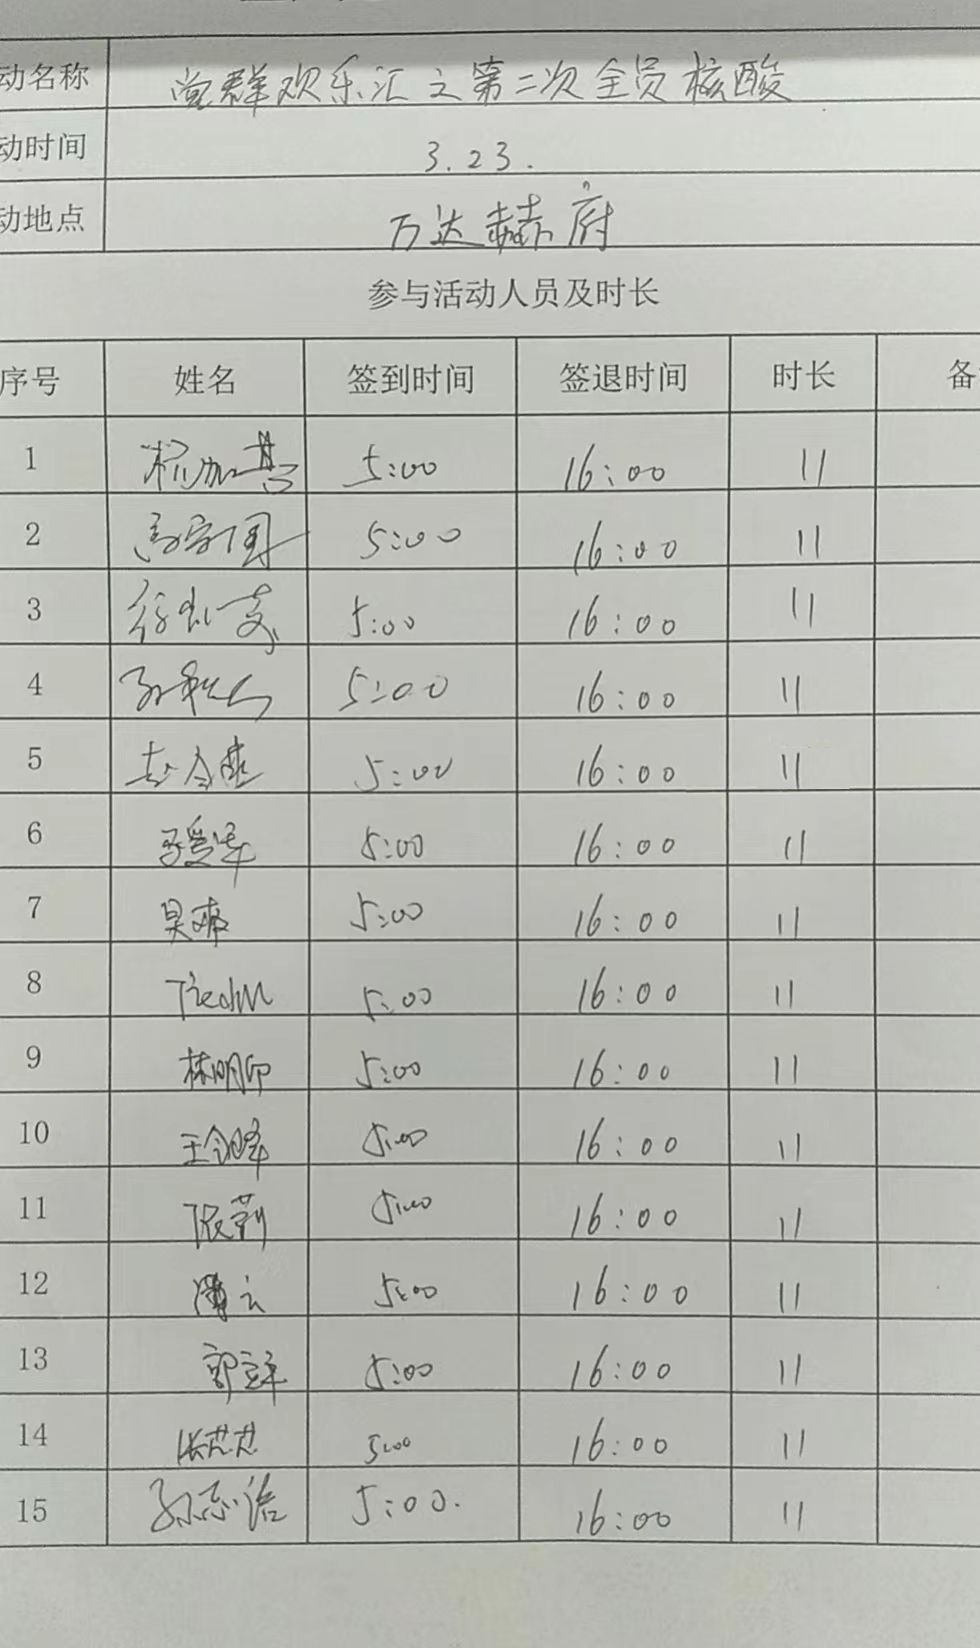 动名称 党群欢乐汇之第二次全员核酸
动时间 3.23.
动地点 万达赫府
参与活动人员及时长
序号 姓名 签到时间 签退时间 时长 备
1 5:00 16:00 11
2 5:00 16:00 11
3 5:00 16:00 11
4 5:00 16:00 11
5 5:00 16:00 11
6 5:00 16:00 11
7 5:00 16:00 11
8 5:00 16:00 11
9 林明印 5:00 16:00 11
10 5:00 16:00 11
11 张莉 5:00 16:00 11
12 5:00 16:00 11
13 5:00 16:00 11
14 张芯芯 5:00 16:00 11
15 孙志浩 5:00. 16:00 11